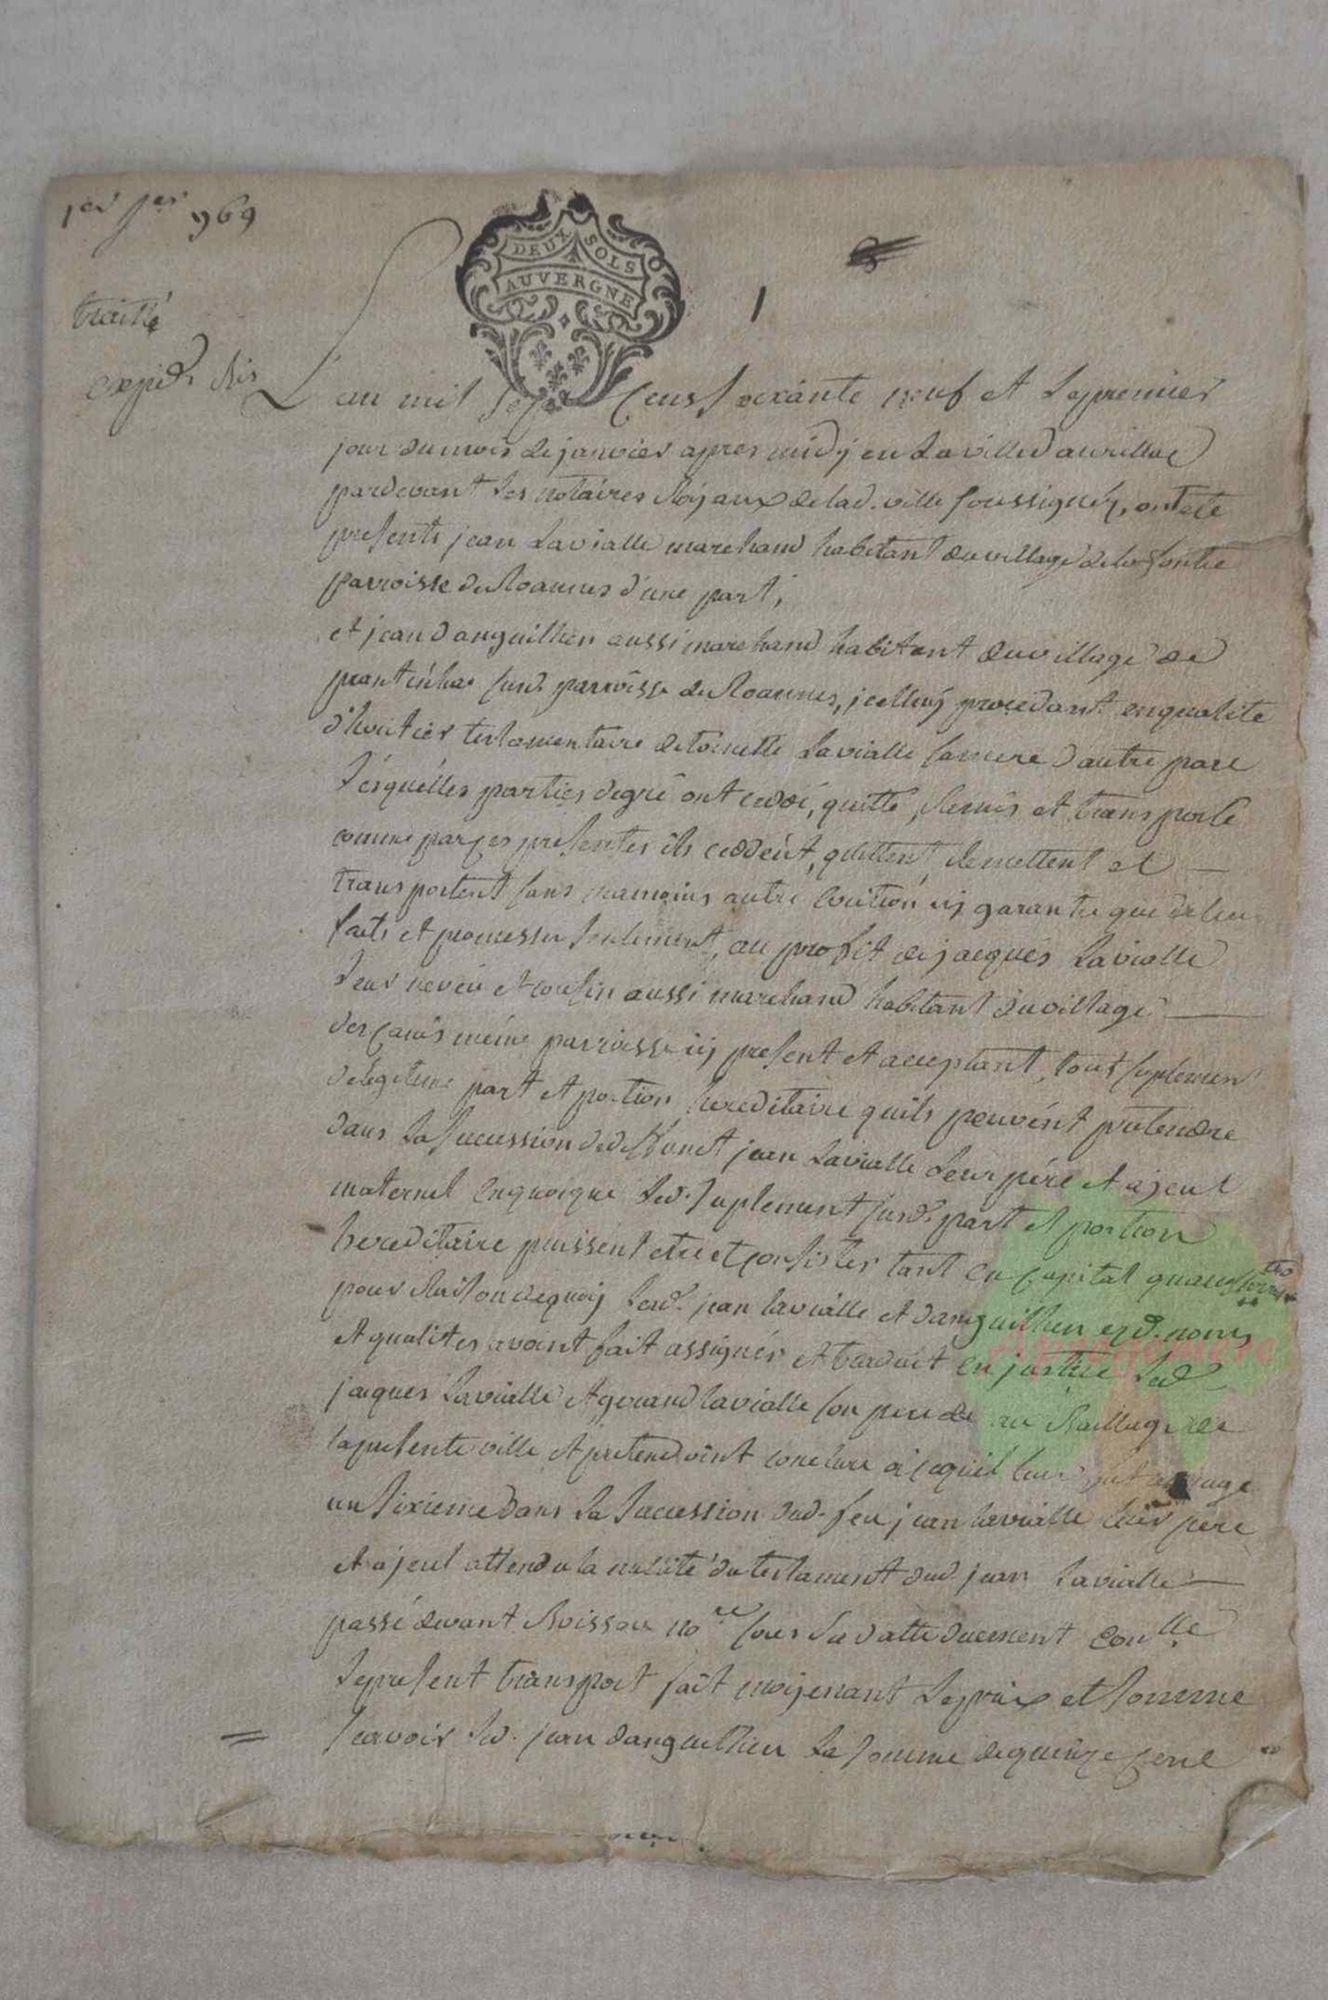 1er Jer 969
DEUX SOLS
AUVERGNE
1
traitté
expédié
L'an mil sept cens soixante neuf et le premier
jour du mois de janvier apres midy en la ville d'aurillac
pardevant les notaires Royaux de lad. ville soussignés, ont été
presents jean Lavialle marchand habitant du village de
parroisse de Roannes d'une part,
et jean danguilhen aussi marchand habitant du village de
susd. parroisse de Roannes, jcelluy procedant en qualité
d'héritier testamentaire de toinette Lavialle sa mere d'autre part
Lesquelles parties de gré ont cedé, quitté, Remis et transporté
comme par ces presentes ils cedent, quittent, Remettent et
transportent sans neamoins autre eviction ny garantie que de leurs
faits et promesses seulement, au profit de jacques Lavialle
leur neveu et cousin aussi marchand habitant du village
des même parroisse icy present et acceptant, tout suplement
de legitime part et portion hereditaire quils peuvent pretendre
dans la sucession de deffunct jean Lavialle leur pére et ajeul
maternel en quoique led. suplement susd. part et portion
hereditaire puissent etre et consister tant en capital
pour Raison de quoy lesd. jean lavialle et danguilhen ezd. noms
et qualites avoint fait assigner et traduit en justice led.
jacques Lavialle et gerand lavialle son pere au Bailliage de
la presente ville et pretendoint conclure a ce quil leur fut adjugé
un sixieme dans la sucession dud. feu jean lavialle leur pere
et ajeul attendu la nullité du testament dud. jean Lavialle
passé devant Boissou no.re sous sa datte duement con.lle
le present transport fait moyenant le prix et somme
scavoir led. jean danguilhen la somme de quinze cent
Apogemere